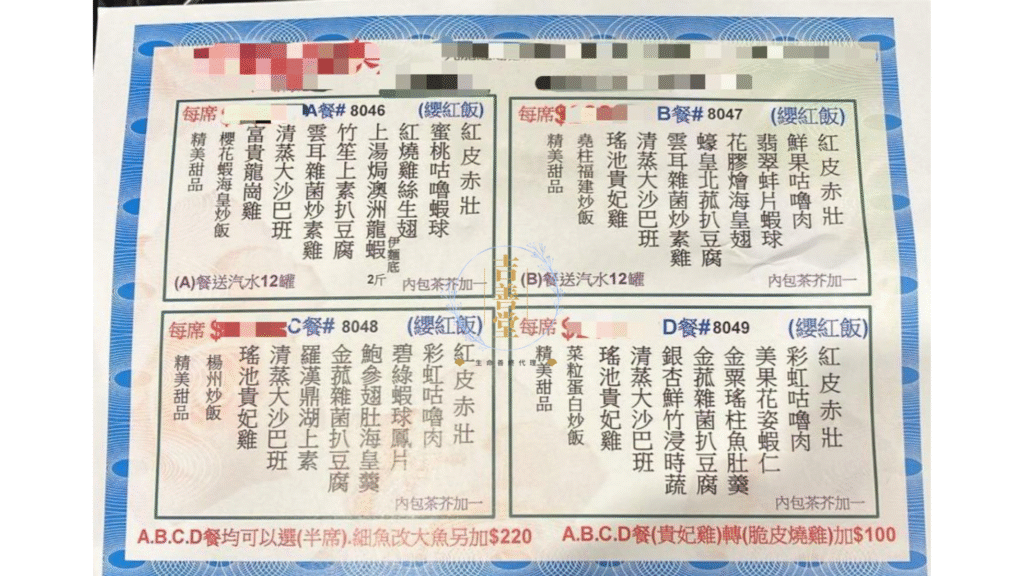 每席$
A餐# 8046
(纓紅飯)
紅皮赤壯
蜜桃咕嚕蝦球
紅燒雞絲生翅
上湯焗澳洲龍蝦
伊麵底
2斤
竹笙上素扒豆腐
雲耳雜菌炒素雞
清蒸大沙巴班
富貴龍崗雞
櫻花蝦海皇炒飯
精美甜品
(A)餐送汽水12罐
內包茶芥加一
每席$
B餐# 8047
(纓紅飯)
紅皮赤壯
鮮果咕嚕肉
翡翠蚌片蝦球
花膠燴海皇翅
蠔皇北菰扒豆腐
雲耳雜菌炒素雞
清蒸大沙巴班
瑤池貴妃雞
堯柱福建炒飯
精美甜品
(B)餐送汽水12罐
內包茶芥加一
每席$
C餐# 8048
(纓紅飯)
紅皮赤壯
彩虹咕嚕肉
碧綠蝦球鳳片
鮑參翅肚海皇羹
金菰雜菌扒豆腐
羅漢鼎湖上素
清蒸大沙巴班
瑤池貴妃雞
楊州炒飯
精美甜品
內包茶芥加一
每席$
D餐# 8049
(纓紅飯)
紅皮赤壯
彩虹咕嚕肉
美果花姿蝦仁
金粟瑤柱魚肚羹
金菰雜菌扒豆腐
銀杏鮮竹浸時蔬
清蒸大沙巴班
瑤池貴妃雞
菜粒蛋白炒飯
精美甜品
內包茶芥加一
吉善堂
生命善終代理
A.B.C.D餐均可以選(半席).細魚改大魚另加$220
A.B.C.D餐(貴妃雞)轉(脆皮燒雞)加$100